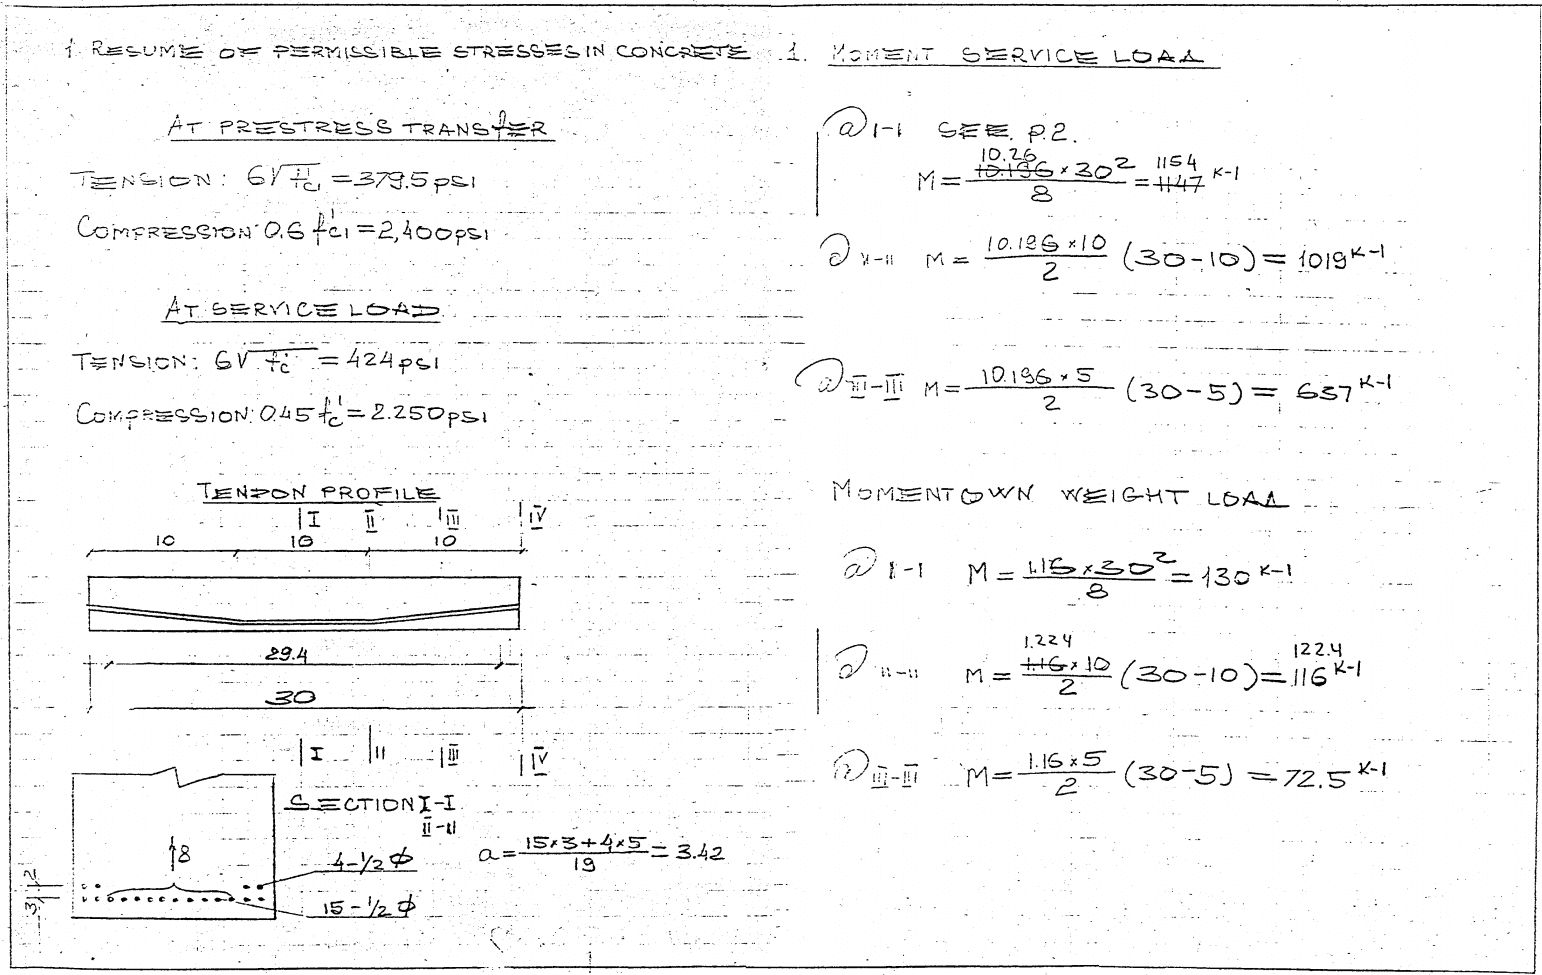 1. RESUME OF PERMISSIBLE STRESSES IN CONCRETE
AT PRESTRESS TRANSFER
TENSION: 6√f'ci = 379.5 psi
COMPRESSION: 0.6 f'ci = 2,400 psi
AT SERVICE LOAD
TENSION: 6√f'c = 424 psi
COMPRESSION: 0.45 f'c = 2.250 psi
TENDON PROFILE
I II III IV
10 10 10
29.4
30
I II III IV
SECTION I-I
II-II
↑8
4-1/2 ϕ
15-1/2 ϕ
2
3
a = (15×3+4×5)/19 = 3.42
1. MOMENT SERVICE LOAD
@ I-I SEE P.2.
10.26 1154
M = (10.196 × 30²)/8 = 1147 K-1
@ II-II M = (10.196 × 10)/2 (30-10) = 1019 K-1
@ III-III M = (10.196 × 5)/2 (30-5) = 637 K-1
MOMENT OWN WEIGHT LOAD
@ I-I M = (1.16 × 30²)/8 = 130 K-1
1.224 122.4
@ II-II M = (1.16 × 10)/2 (30-10) = 116 K-1
@ III-III M = (1.16 × 5)/2 (30-5) = 72.5 K-1